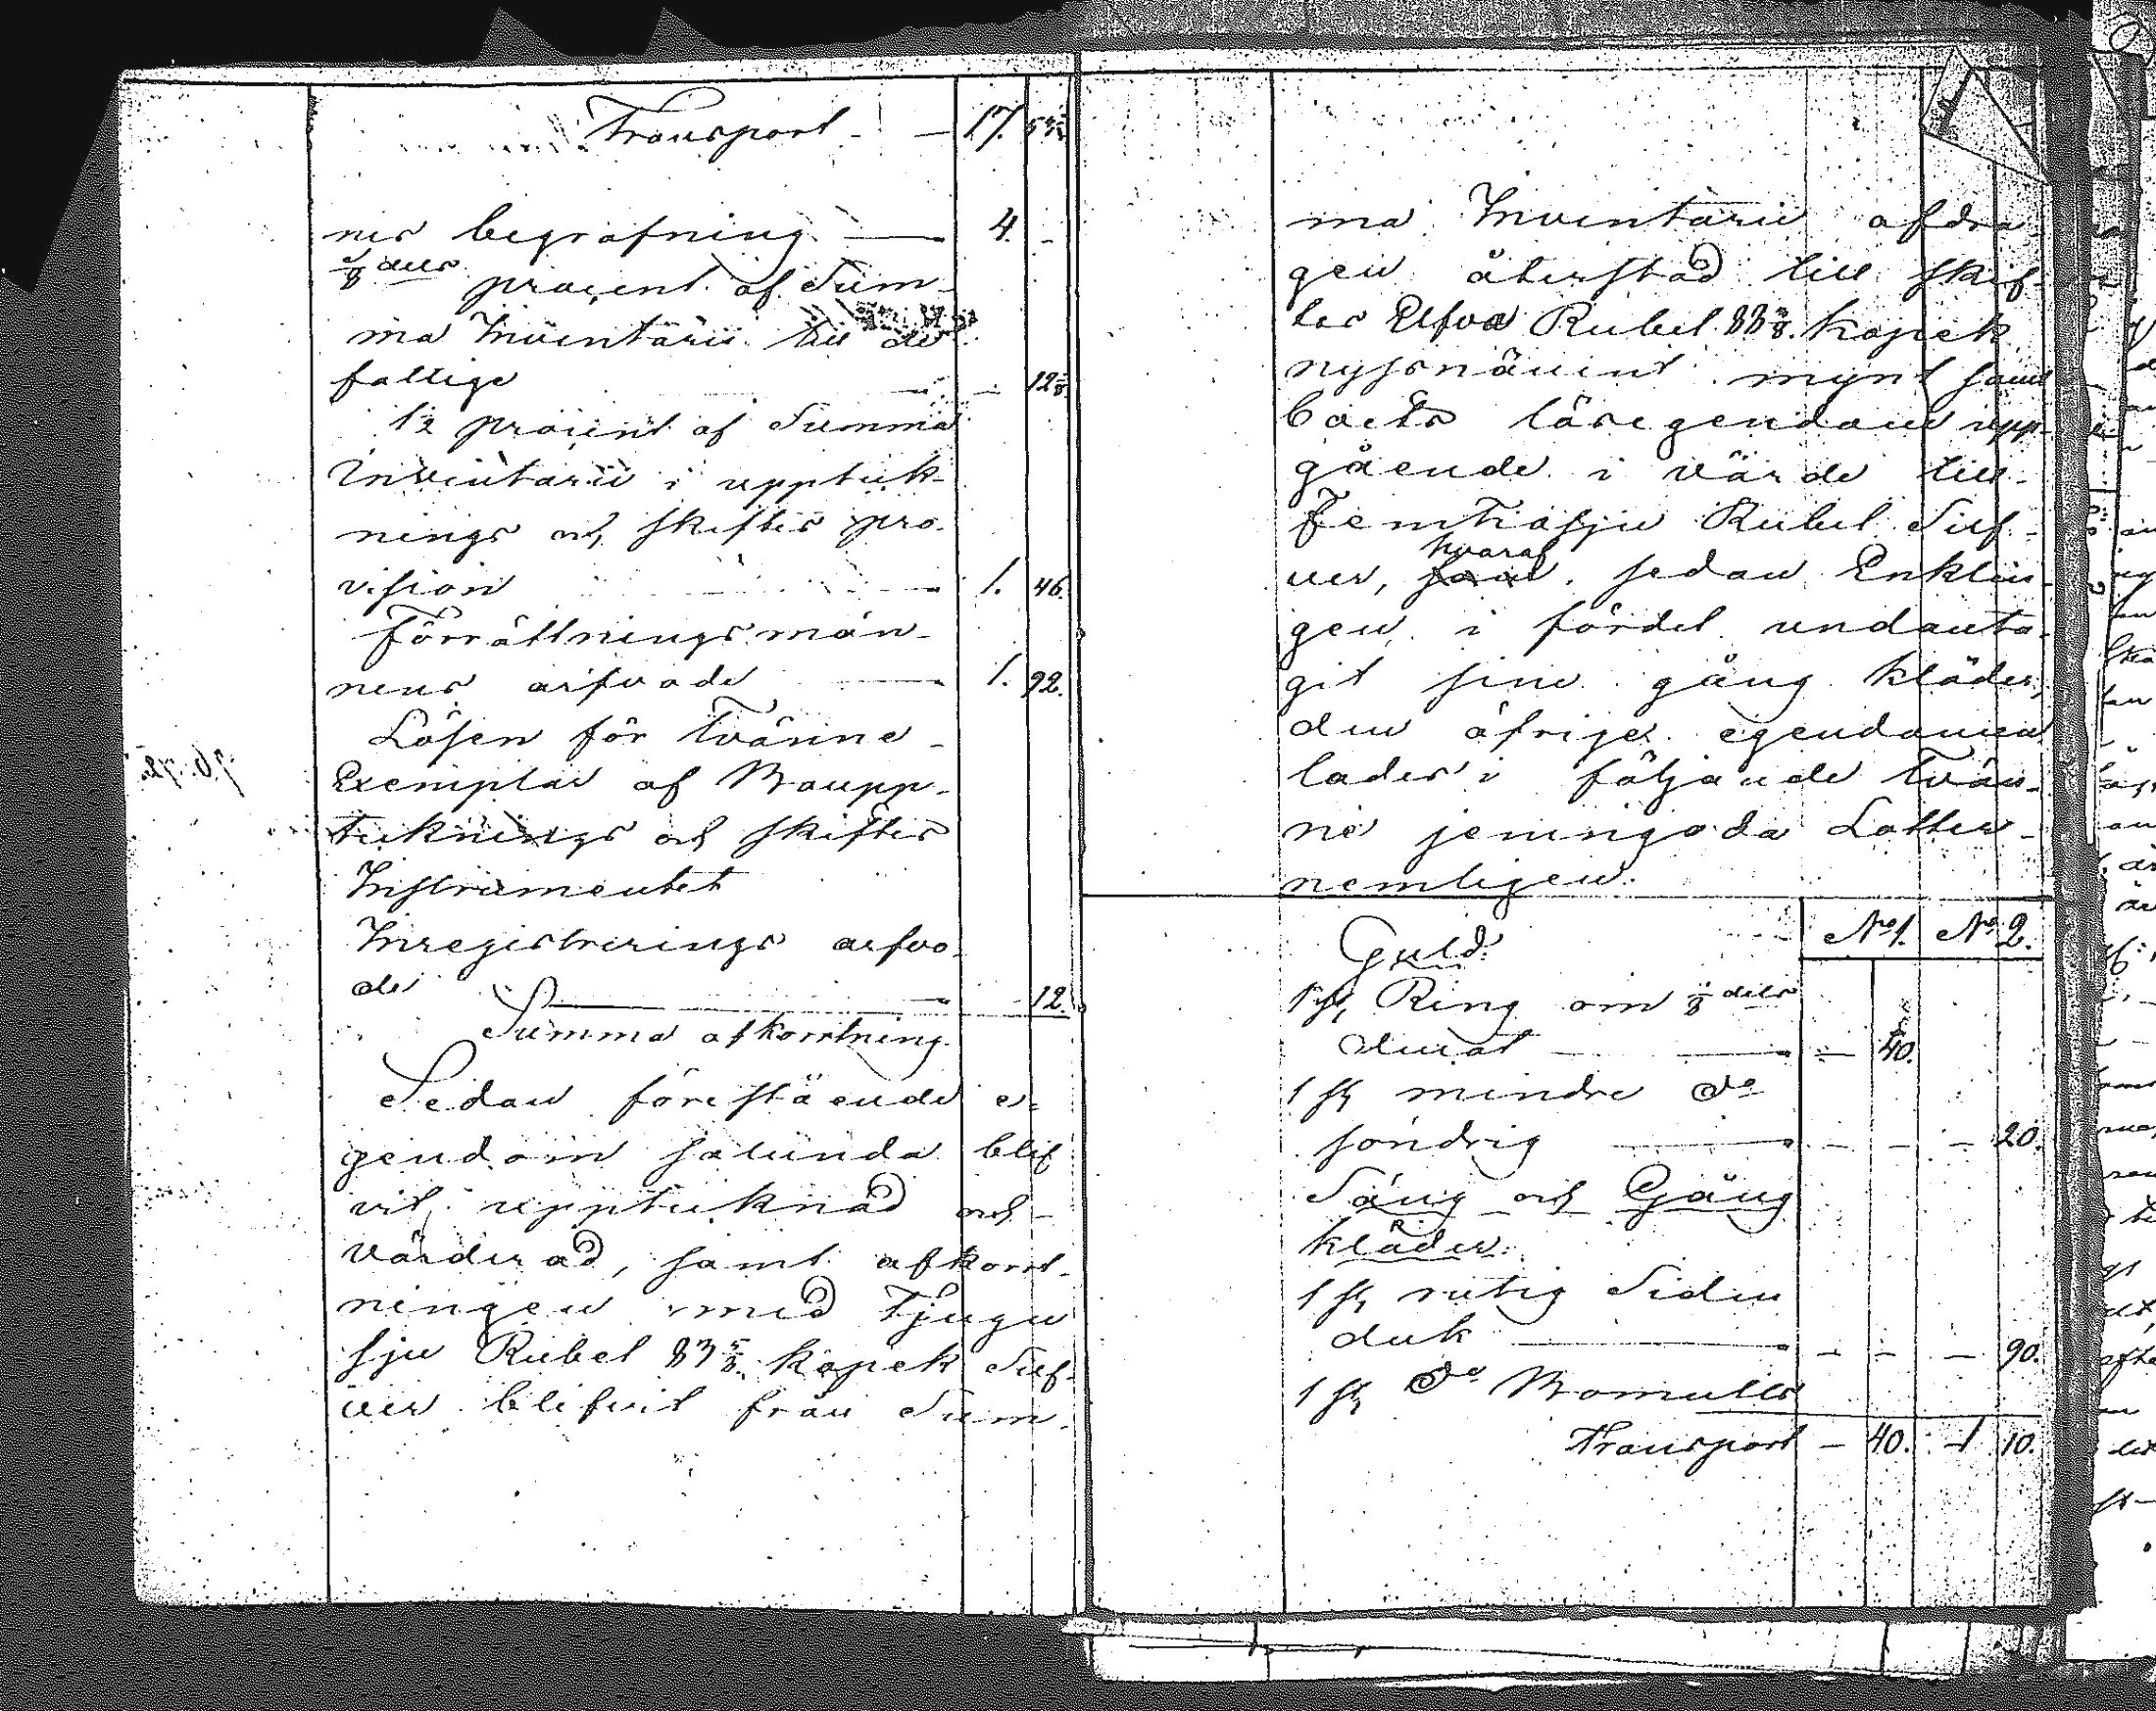 Transport - — 17. 53½
nes begrafning — 4. -
⅛ dels procent af Sum-
ma Inventarii till de
fattige — - 12⅜
1½ procent af Summa
Inventarii i upptek-
nings och skiftes pro-
vision — 1. 46.
Förrättningsmän-
nens arfvode — 1. 92.
Lösen för tvänne
Exemplar af Boupp-
teknings och skiftes
Instrumentet
Inregistrerings arfvo-
de — - 12.
Summa afkorrtning
Sedan förestående e-
gendom salunda blif-
vit uppteknad och
värderad, samt afkorrt-
ningen med Tjugu
sju Rubel 83⅝ kopek Silf-
ver blifvit från Sum-
ma Inventarii afdra-
gen återstod till skif-
tes Elfva Rubel 88⅜ kopek
nyssnämnt mynt samt
boets lösegendom upp-
gående i värde till
Femtiosju Rubel Silf-
ver, hvaraf sedan Enklin-
gen i fördel undanta-
git sine gång kläder,
den öfriga egendomen
lades i följande tvän-
ne jemngoda Lotter
nemligen:
No 1. No 2.
Guld:
1 st Ring om ⅛ dels
ducat — — 40.
1 st mindre do
söndrig — - - - 20.
Säng och Gång
kläder:
1 st rutig Siden
duk — - - - 90.
1 st do Bomulls
Transport — 40. 1 10.